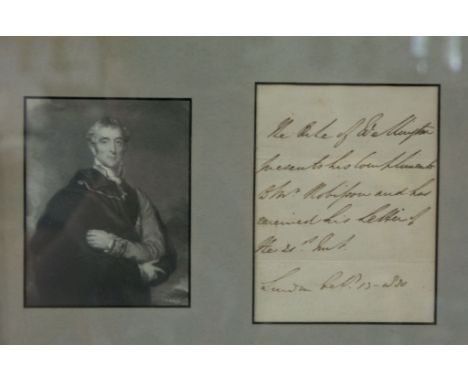 The Duke of Wellington
presents his Compliments
to Mr. Robisson and has
received his Letter of
the 21st Inst.
London 13 1830